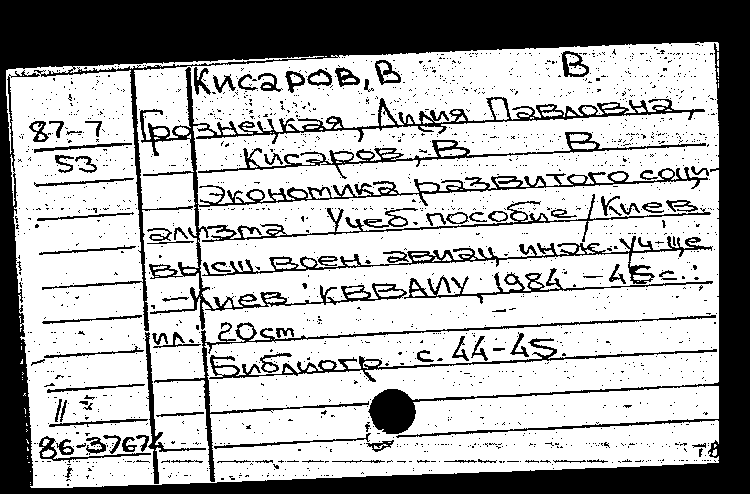 Кисаров, В В
87-7 Грознецкая, Лидия Павловна,
53 Кисаров, В В
Экономика развитого соци-
ализма : Учеб. пособие / Киев.
высш. воен. авиац. инж. уч-ще
. – Киев : КВВАИУ, 1984. – 45 с. :
ил. ; 20 см.
Библиогр.: с. 44-45.
11
86-37674